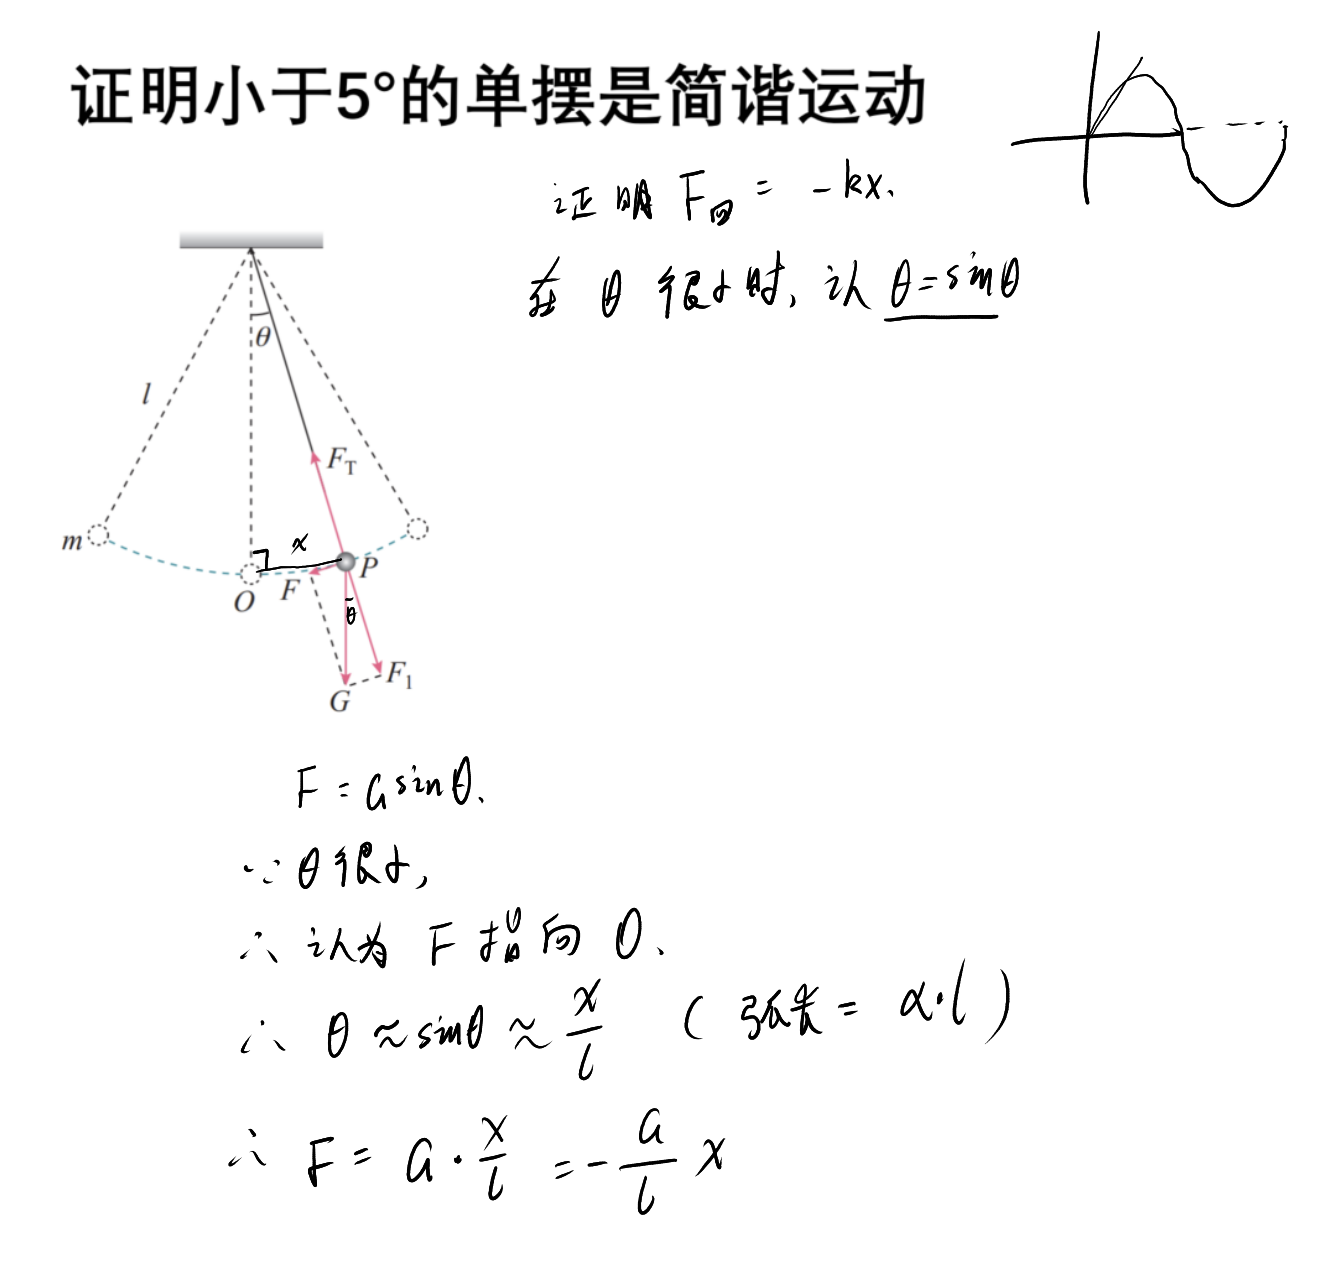 证明小于5°的单摆是简谐运动
证明 F回 = -kx.
在 θ 很小时, 认 θ=sinθ
θ
l
F_T
m
x
P
O
F
θ
F_1
G
F = G sinθ.
∵ θ很小,
∴ 认为 F 指向 O.
∴ θ ≈ sinθ ≈ x/l ( 弧长 = α·l )
∴ F = G · x/l = - G/l x